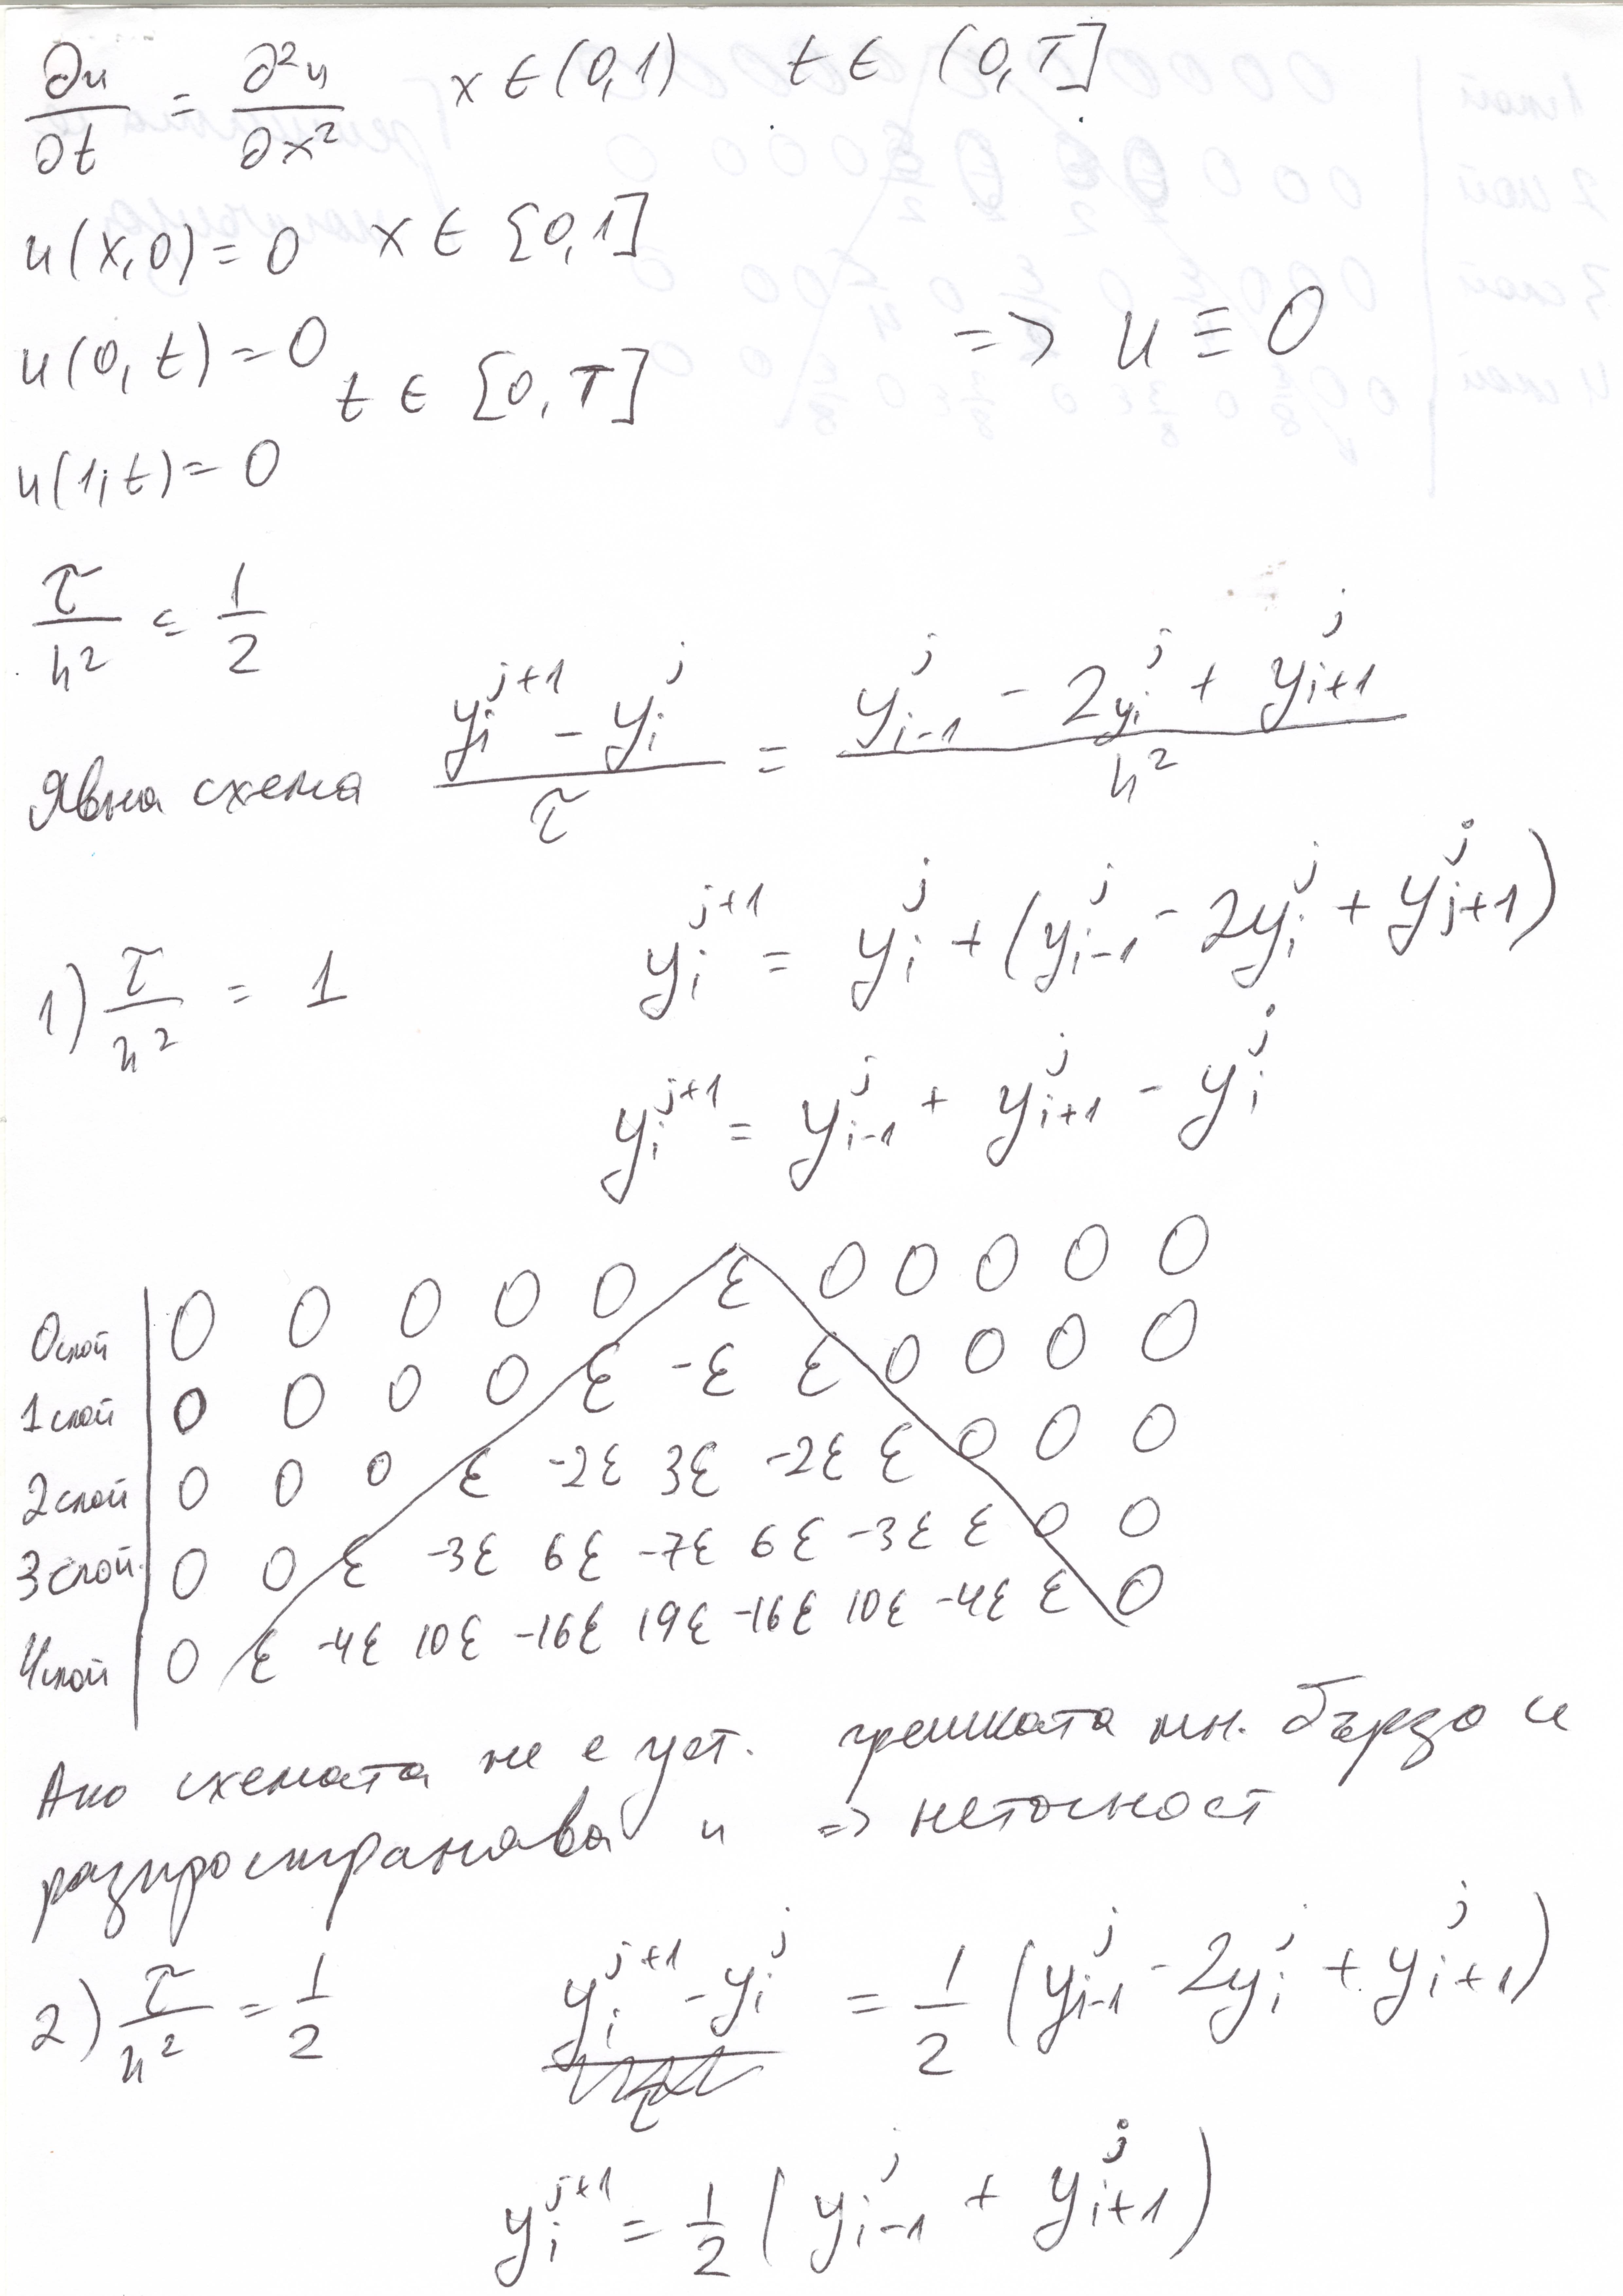 ∂u/∂t = ∂²u/∂x² x ∈ (0,1) t ∈ (0,T]
u(x,0) = 0 x ∈ [0,1]
u(0,t) = 0 t ∈ [0,T] => u ≡ 0
u(1,t) = 0
τ/h² = 1/2
Явна схема (y_i^{j+1} - y_i^j)/τ = (y_{i-1}^j - 2y_i^j + y_{i+1}^j)/h²
1) τ/h² = 1 y_i^{j+1} = y_i^j + (y_{i-1}^j - 2y_i^j + y_{j+1}^j)
y_i^{j+1} = y_{i-1}^j + y_{i+1}^j - y_i^j
0 слой | 0 0 0 0 0 ε 0 0 0 0 0
1 слой | 0 0 0 0 ε -ε ε 0 0 0 0
2 слой | 0 0 0 ε -2ε 3ε -2ε ε 0 0 0
3 слой | 0 0 ε -3ε 6ε -7ε 6ε -3ε ε 0 0
4 слой | 0 ε -4ε 10ε -16ε 19ε -16ε 10ε -4ε ε 0
Ако схемата не е уст. грешката мн. бързо се
разпространява и => неточност
2) τ/h² = 1/2 y_i^{j+1} - y_i^j = 1/2 (y_{i-1}^j - 2y_i^j + y_{i+1}^j)
y_i^{j+1} = 1/2 (y_{i-1}^j + y_{i+1}^j)